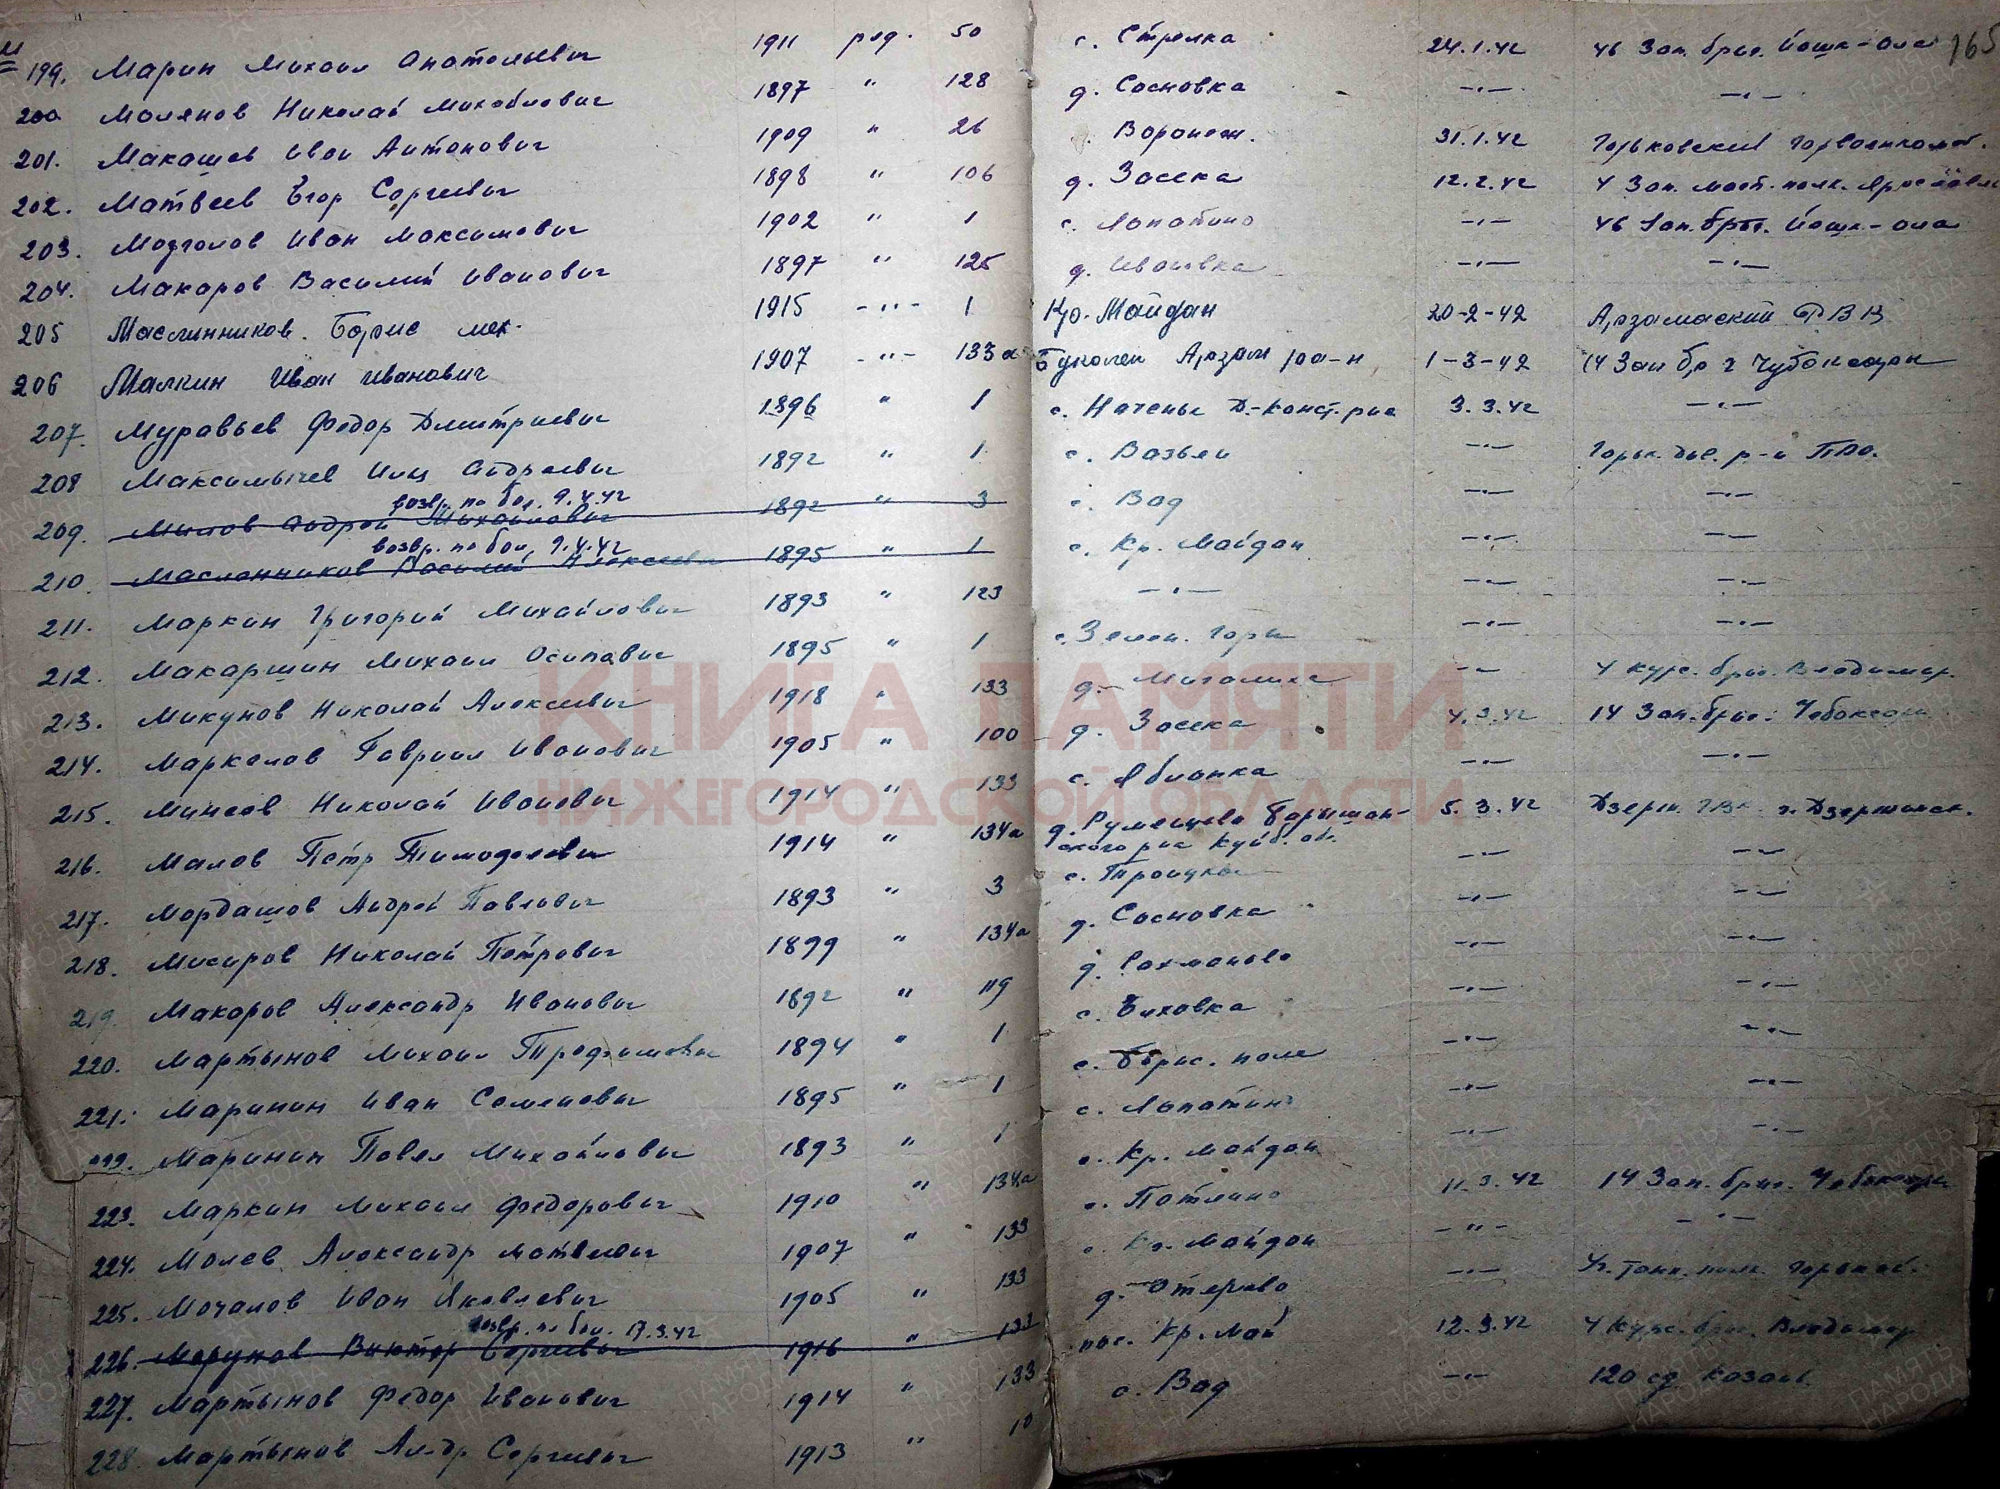 М
165
199. Марин Михаил Анатольевич 1911 ряд. 50 с. Стрелка 24.1.42 46 Зап. бриг. Йошк-Ола
200 Молянов Николай Михайлович 1897 " 128 д. Сосновка -"- -"-
201. Макашев Иван Антонович 1909 " 26 Воронеж. 31.1.42 Горьковский Горвоенкомат.
202. Матвеев Егор Сергеевич 1898 " 106 д. Засека 12.2.42 4 Зап. мост. полк.
203. Иван Максимович 1902 " 1 с. Лопатино -"- 46 Зап. бриг. Йошк-Ола
204. Макаров Василий Иванович 1897 " 125 д. Ивашевка -"- -"-
205 Масленников Борис Мих. 1915 -"- 1 Кр. Майдан 20-2-42 Арзамаский РВК
206 Малкин Иван Иванович 1907 -"- 133а Арзам ра-н 1-3-42 14 Зап бр г Чубоксары
207. Муравьев Федор Дмитриевич 1896 " 1 с. Д.-Конст. р-на 3.3.42 -"-
208 Максимычев Андреевич 1892 " 1 с. Вазьян -"- Горьк.
возвр. по бол. 9.4.42
209. Милов Андрей Михайлович 1892 " 3 с. Вад -"- -"-
возвр. по бол. 9.4.42
210. Масленников Василий Алексеевич 1895 " 1 с. Кр. Майдан -"- -"-
211. Маркин Григорий Михайлович 1893 " 123 -"- -"- -"-
212. Макаршин Михаил Осипович 1895 " 1 с. Зелен. Горы -"- -"-
213. Микунов Николай Алексеевич 1918 " 133 д. -"- 4 курс. бриг. Владимир.
214. Маркелов Гавриил Иванович 1905 " 100 д. Засека 4.3.42 14 Зап. бриг. Чебоксары
215. Минеев Николай Иванович 1914 " 133 с. Яблонка -"- -"-
216. Малов Петр Тимофеевич 1914 " 134а д. Румянцево Барышан-
ского р-на Куйб. об. 5.3.42 Дзерж. ГВК г. Дзержинск.
217. Мордашов Андрей Павлович 1893 " 3 с. Троицкое -"- -"-
218. Мисиров Николай Петрович 1899 " 134а д. Сосновка -"- -"-
219. Макаров Александр Иванович 1892 " 119 д. Рахманово -"- -"-
220. Мартынов Михаил Трофимович 1894 " 1 с. Елховка -"- -"-
221. Маринин Иван Семенович 1895 " 1 с. Борис. поле -"- -"-
222. Маринин Павел Михайлович 1893 " 1 с. Лопатино -"- -"-
223. Маркин Михаил Федорович 1910 " 134а с. Кр. Майдан -"- -"-
224. Молев Александр Матвеевич 1907 " 133 с. Потлино 11.3.42 14 Зап. бриг. Чебоксары
225. Мочалов Иван Яковлевич 1905 " 133 с. Кр. Майдан -"- -"-
возвр. по бол. 17.3.42
226. Виктор Сергеевич 1916 " 133 д. Отерево -"- Уч. танк. полк. Горький.
227. Мартынов Федор Иванович 1914 " 133 пос. Кр. Май 12.3.42 4 курс. бриг. Владимир
228 Мартынов Ал-др Сергеевич 1913 " 10 с. Вад -"- 120 сд Казань
КНИГА ПАМЯТИ
НИЖЕГОРОДСКОЙ ОБЛАСТИ
ПАМЯТЬ
НАРОДА